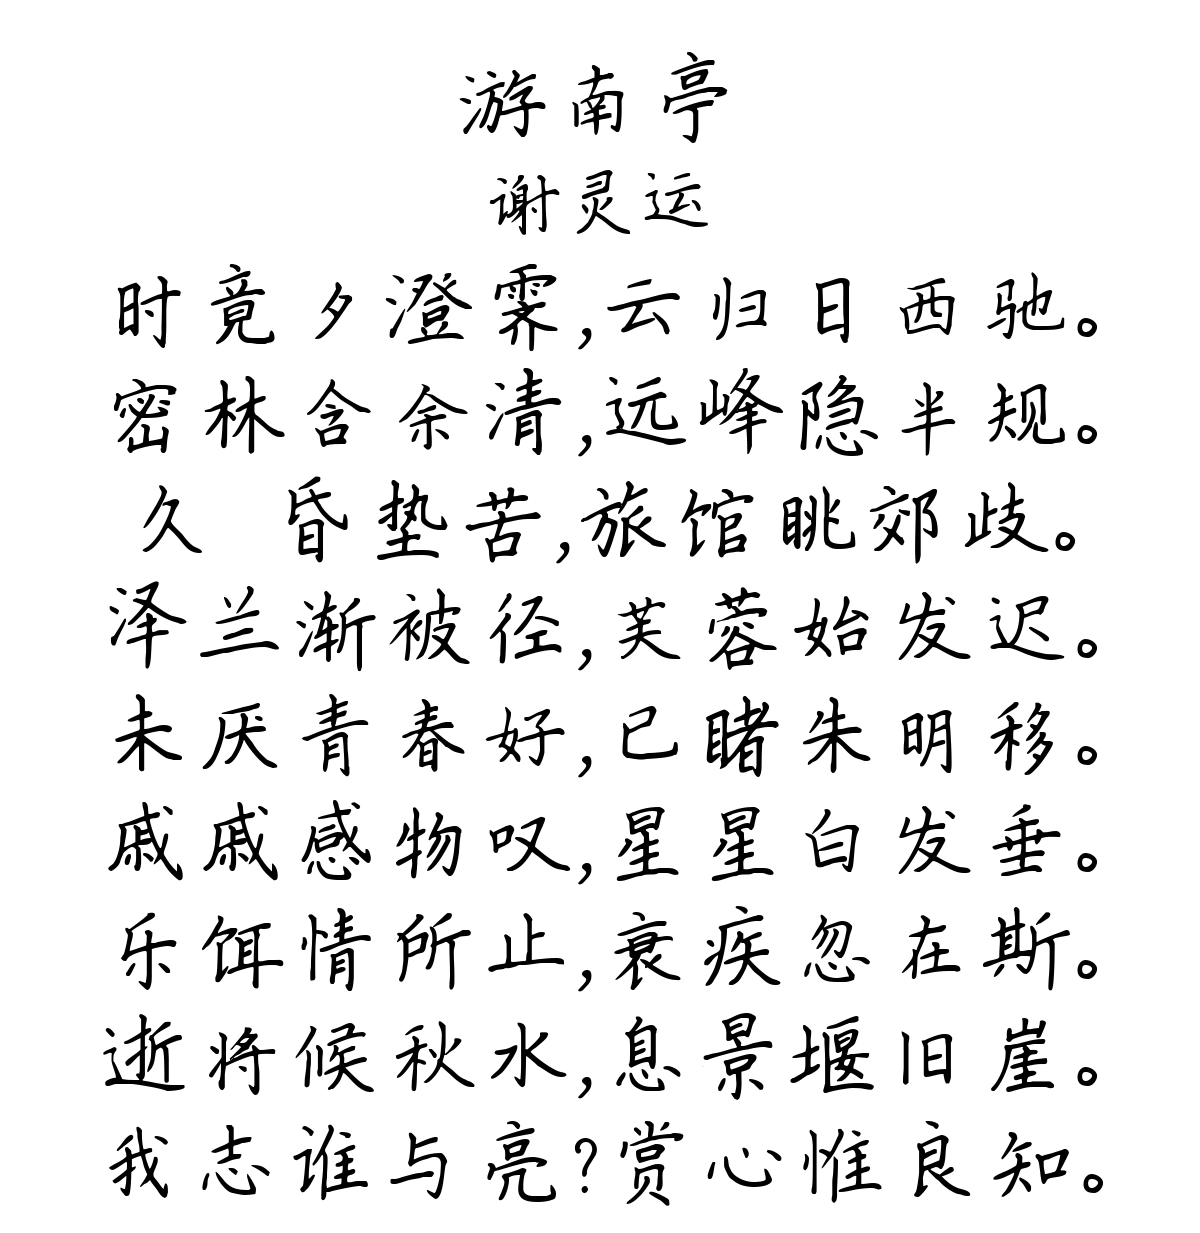 游南亭
谢灵运
时竟夕澄霁,云归日西驰。
密林含余清,远峰隐半规。
久 昏垫苦,旅馆眺郊歧。
泽兰渐被径,芙蓉始发迟。
未厌青春好,已睹朱明移。
戚戚感物叹,星星白发垂。
乐饵情所止,衰疾忽在斯。
逝将候秋水,息景堰旧崖。
我志谁与亮?赏心惟良知。